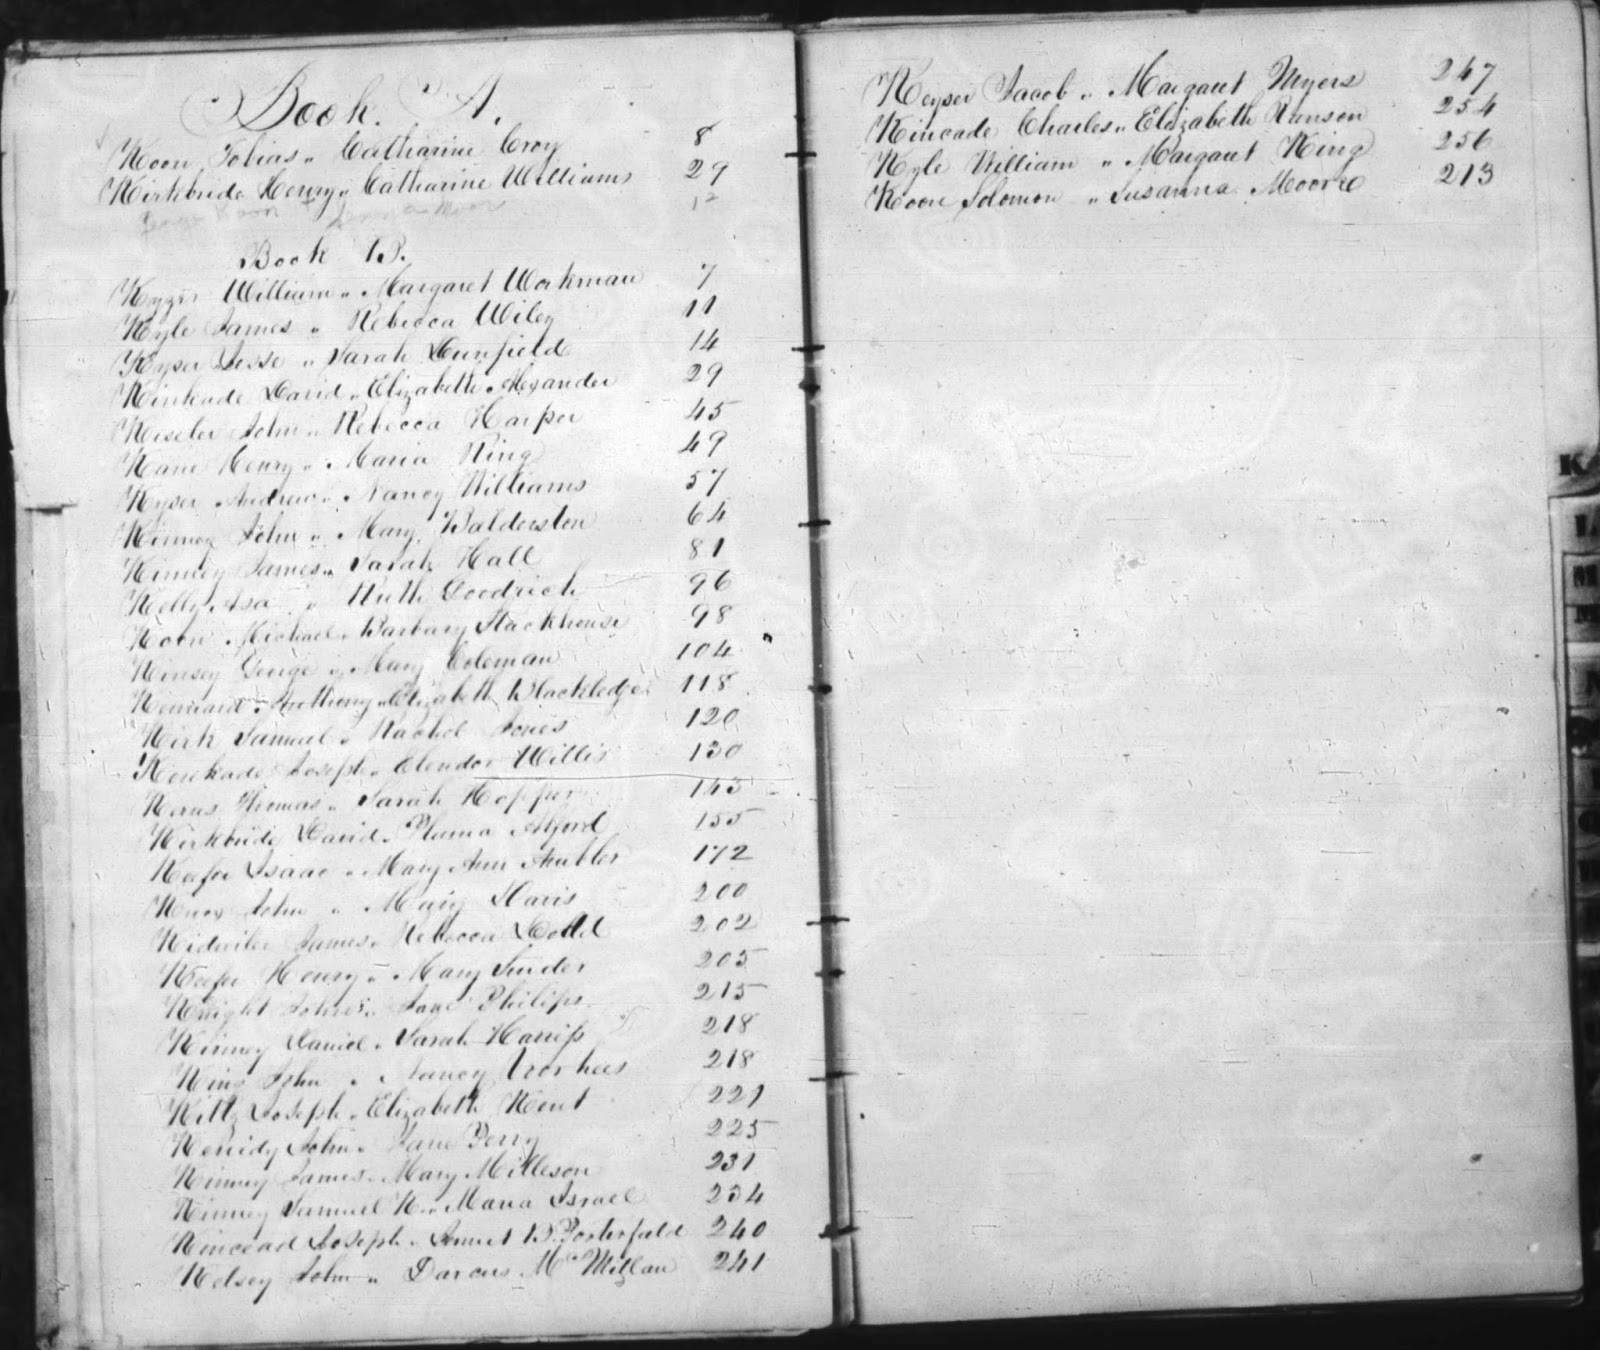 Book. A.
Koon Tobias " Catharine Croy 8
Kirkbride Henry " Catharine Williams 29
Koon Moon 12
Book B.
William " Margaret Workman 7
Kyle James " Rebecca Wiley 11
Kyser Jesse " Sarah 14
Kinkade David " Elizabeth Alexander 29
Keseler John " Rebecca Harper 45
Kane Henry " Maria King 49
Kyser Andrew " Nancy Williams 57
Kinney John " Mary Balderston 64
Kinney James " Sarah Hall 81
Kelly Asa " Ruth Goodrich 96
Koon Michael " Barbary Stackhouse 98
Kinsey George " Mary Coleman 104
Kennard Anthony " Elizabeth Blackledge 118
Kirk Samuel " Rachel Jones 120
Joseph " Elendor Willis 130
Kerns Thomas " Sarah Hopper 143
Kirkbride David " Pluma Alford 155
Keefer Isaac " Mary Ann 172
Knox John " Mary Davis 200
James " Rebecca 202
Keefer Henry " Mary 205
Knight " Jane Philips 215
Kinney Daniel " Sarah Harriss 218
King John " Nancy Voorhees 218
Kiltz Joseph " Elizabeth Kent 221
Kenidy John " Jane Perry 225
Kinney James " Mary Milleson 231
Kinney Samuel K. " Maria Israel 234
Kincead Joseph " B. Porterfield 240
Kelsey John " Darcus McMillan 241
Keyser Jacob " Margaret Myers 247
Kincade Charles " Elizabeth Ranson 254
Kyle William " Margaret King 256
Koon Solomon " Susanna Moore 213
K